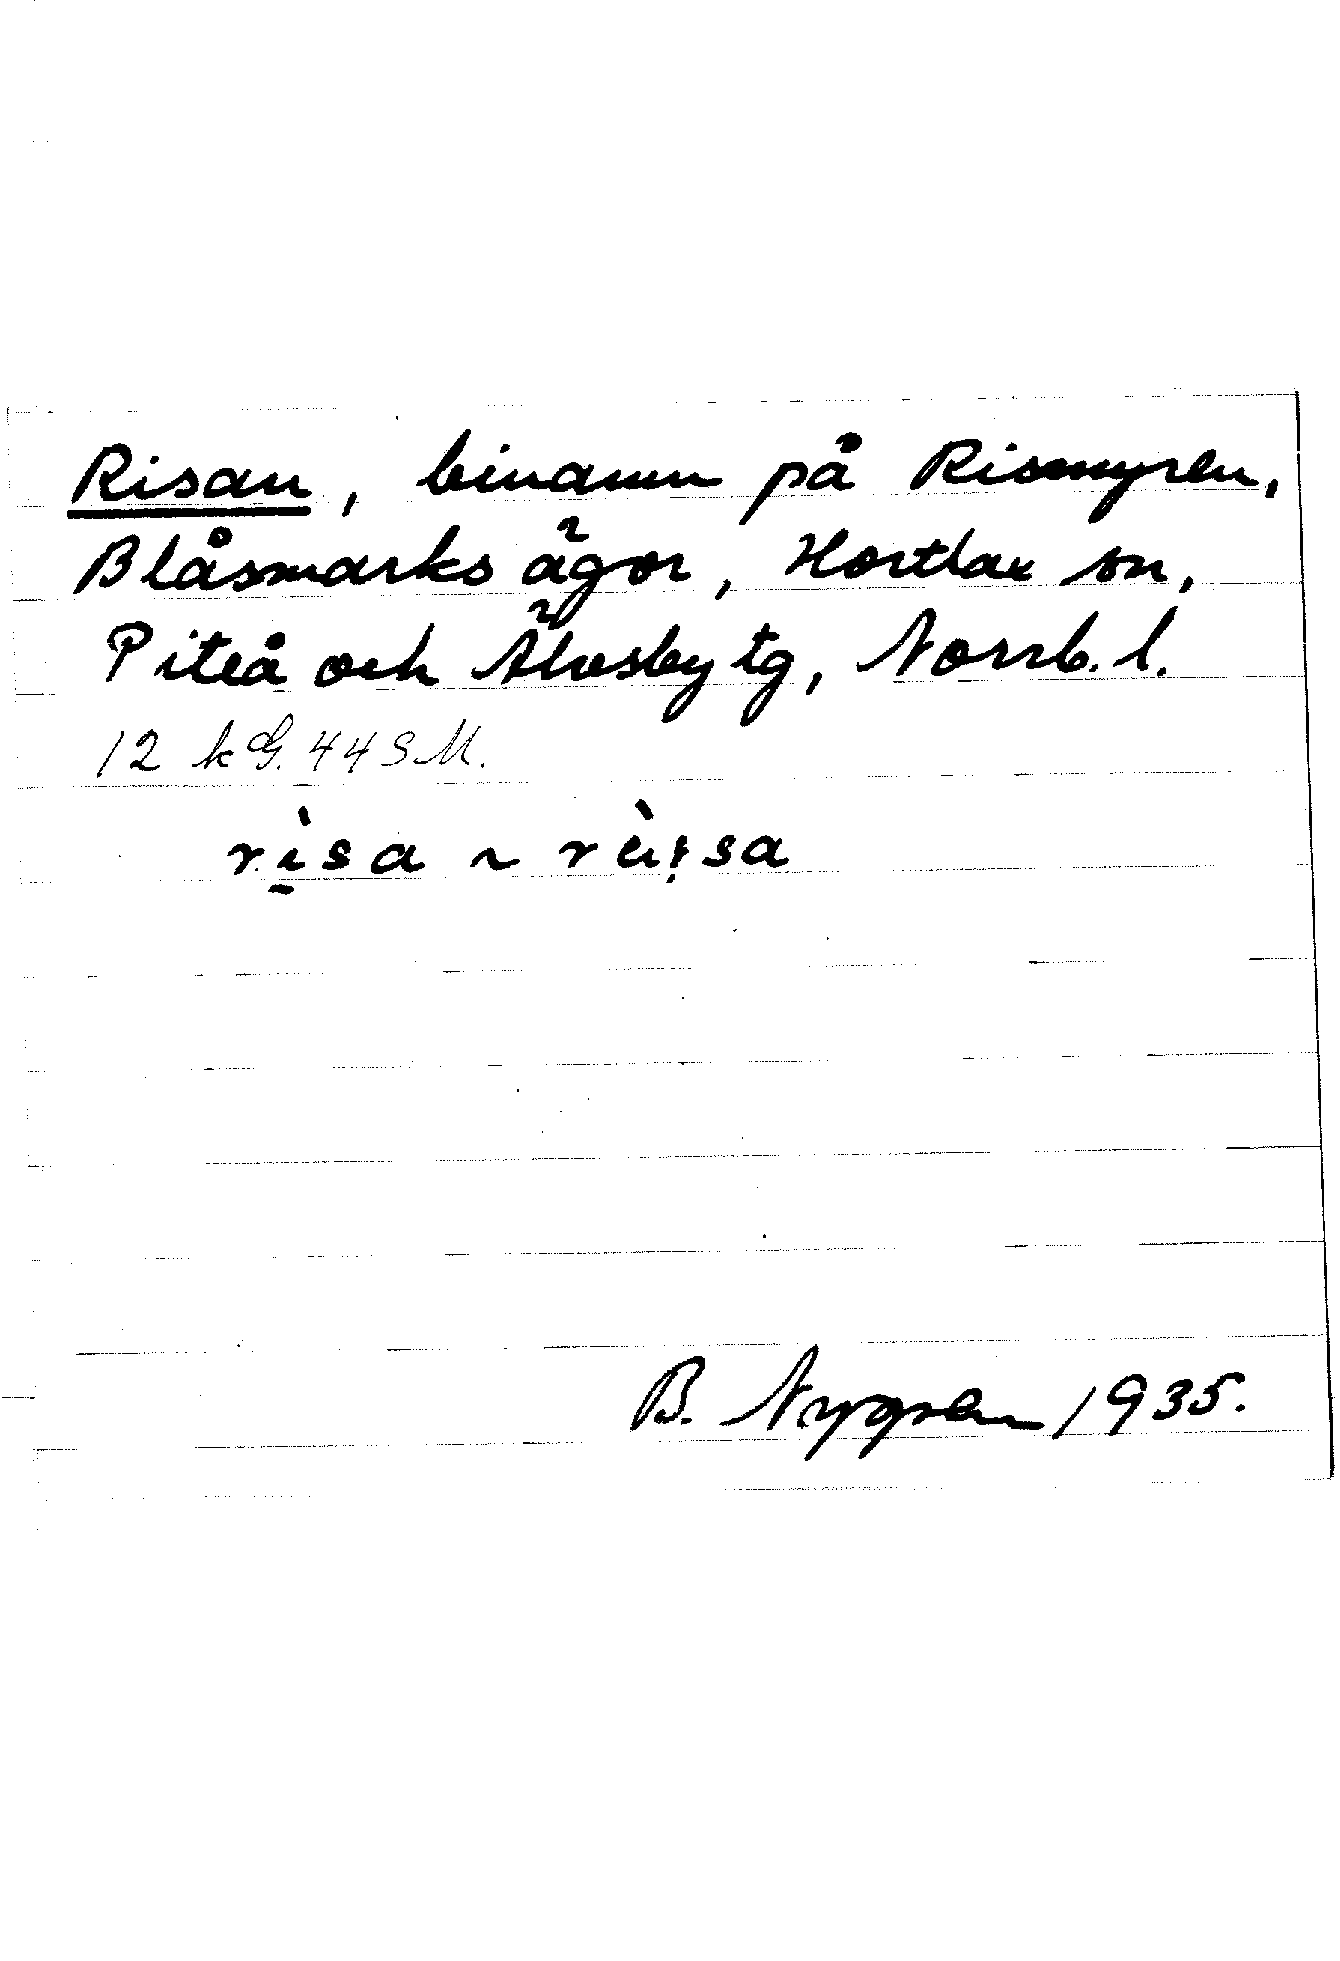 Risan, binamn på Rismyren,
Blåsmarks ägor, Hortlax sn,
Piteå och Älvsby tg, Norrb. l.
12 k G. 44 S M.
rìsa ~ rèi̯sa
B. Nygren 1935.